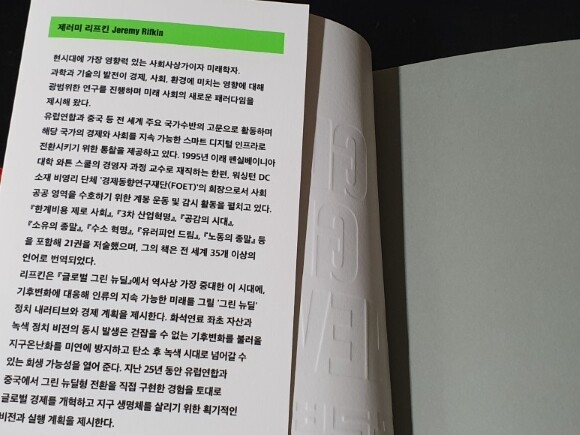 제러미 리프킨 Jeremy Rifkin
현시대에 가장 영향력 있는 사회사상가이자 미래학자.
과학과 기술의 발전이 경제, 사회, 환경에 미치는 영향에 대해
광범위한 연구를 진행하며 미래 사회의 새로운 패러다임을
제시해 왔다.
유럽연합과 중국 등 전 세계 주요 국가수반의 고문으로 활동하며
해당 국가의 경제와 사회를 지속 가능한 스마트 디지털 인프라로
전환시키기 위한 통찰을 제공하고 있다. 1995년 이래 펜실베이니아
대학 와튼 스쿨의 경영자 과정 교수로 재직하는 한편, 워싱턴 DC
소재 비영리 단체 '경제동향연구재단(FOET)'의 회장으로서 사회
공공 영역을 수호하기 위한 계몽 운동 및 감시 활동을 펼치고 있다.
『한계비용 제로 사회』, 『3차 산업혁명』, 『공감의 시대』,
『소유의 종말』, 『수소 혁명』, 『유러피언 드림』, 『노동의 종말』 등
을 포함해 21권을 저술했으며, 그의 책은 전 세계 35개 이상의
언어로 번역되었다.
리프킨은 『글로벌 그린 뉴딜』에서 역사상 가장 중대한 이 시대에,
기후변화에 대응해 인류의 지속 가능한 미래를 그릴 '그린 뉴딜'
정치 내러티브와 경제 계획을 제시한다. 화석연료 좌초 자산과
녹색 정치 비전의 동시 발생은 걷잡을 수 없는 기후변화를 불러올
지구온난화를 미연에 방지하고 탄소 후 녹색 시대로 넘어갈 수
있는 회생 가능성을 열어 준다. 지난 25년 동안 유럽연합과
중국에서 그린 뉴딜형 전환을 직접 구현한 경험을 토대로
글로벌 경제를 개혁하고 지구 생명체를 살리기 위한 획기적인
비전과 실행 계획을 제시한다.